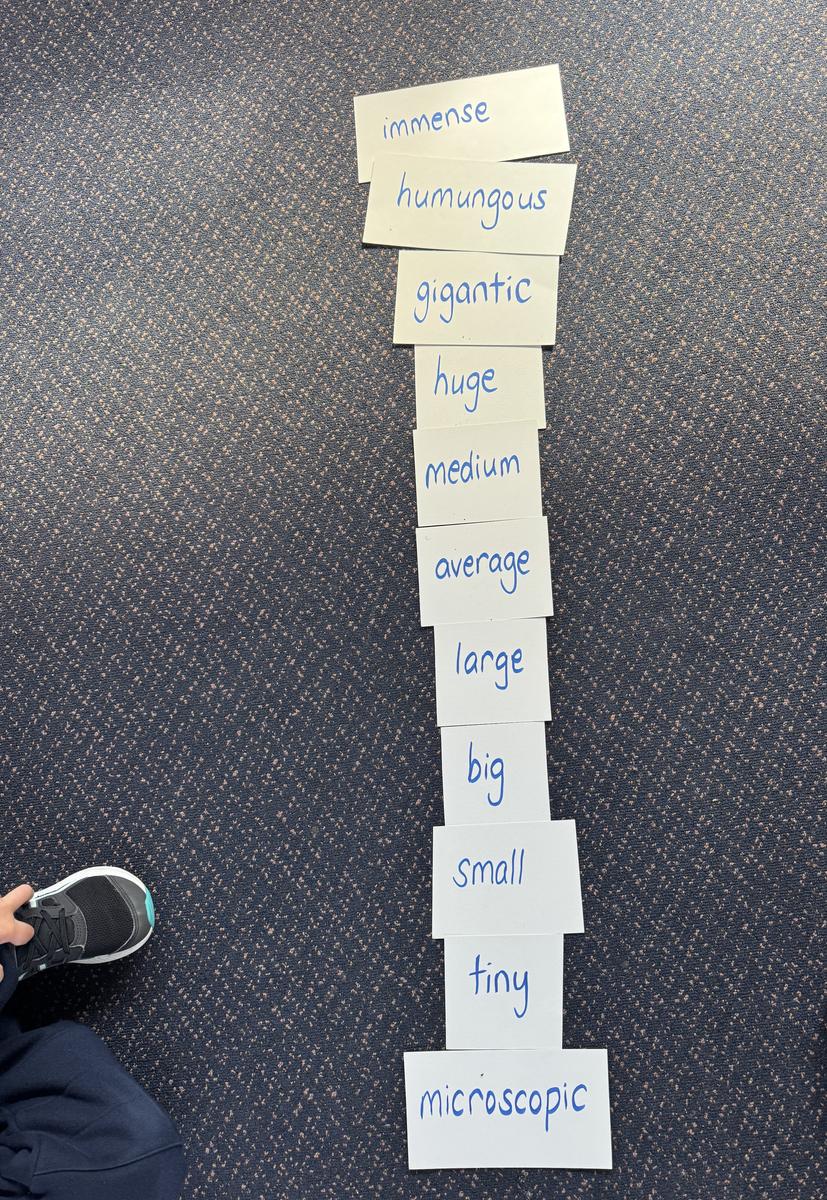 immense
humungous
gigantic
huge
medium
average
large
big
small
tiny
microscopic